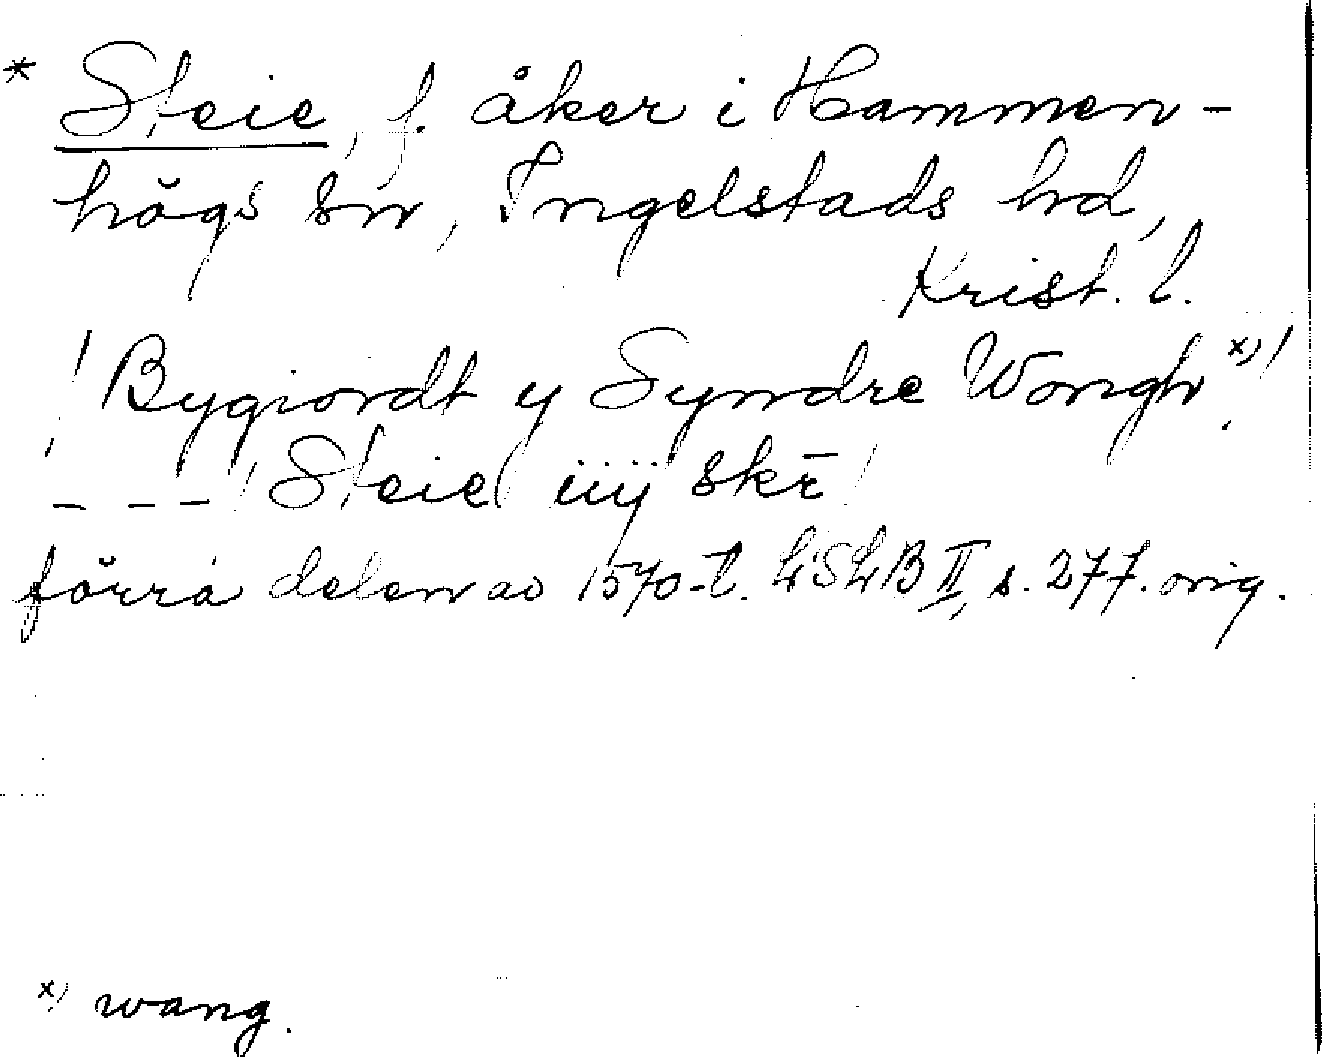 * Steie, f. åker i Hammen-
högs sn, Ingelstads hd,
Krist. l.
! Bygiordt y Syndre Wongh x) !
- - - ! Steie iiij skē !
förra delen av 1570-t. LSLB II, s. 277. orig.
x) wang.